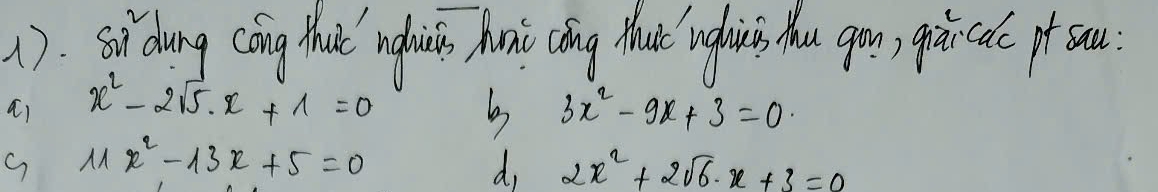 1). Sử dụng công thức nghiệm hoặc công thức nghiệm thu gọn, giải các pt sau:
a, x² - 2√5. x + 1 = 0 b, 3x² - 9x + 3 = 0.
c, 11x² - 13x + 5 = 0 d, 2x² + 2√6. x + 3 = 0